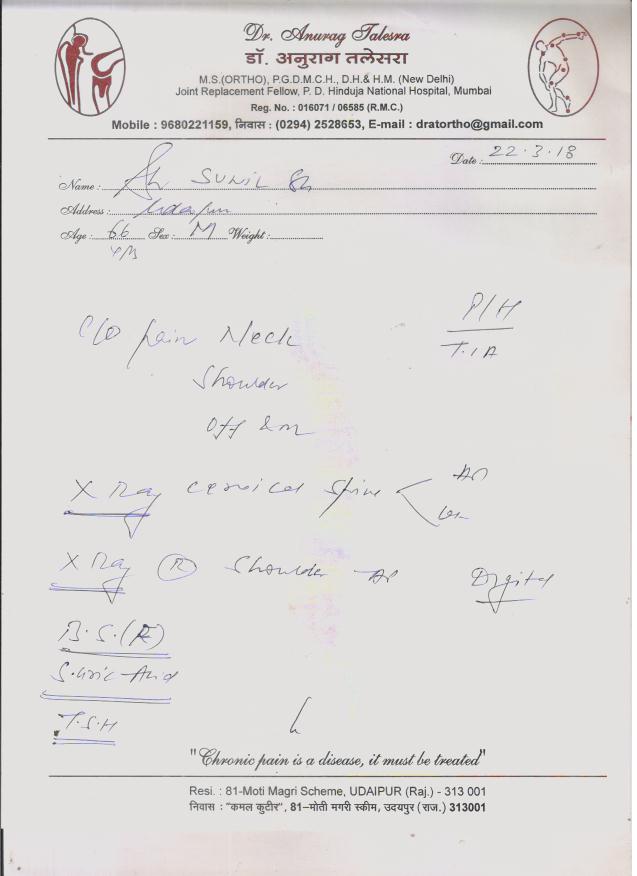 Dr. Anurag Talesra
डॉ. अनुराग तलेसरा
M.S.(ORTHO), P.G.D.M.C.H., D.H.& H.M. (New Delhi)
Joint Replacement Fellow, P. D. Hinduja National Hospital, Mumbai
Reg. No. : 016071 / 06585 (R.M.C.)
Mobile : 9680221159, निवास : (0294) 2528653, E-mail : dratortho@gmail.com
Date : 22.3.18
Name : Sh SUNIL
Address : Udaipur
Age : 66 Sex : M Weight :
P/H
C/O pain Neck
T.I.A
Shoulder
off &
X Ray cervical spine AP
X Ray (R) Shoulder - AP Digital
B.S.(R)
S.uric Acid
T.S.H
"Chronic pain is a disease, it must be treated"
Resi. : 81-Moti Magri Scheme, UDAIPUR (Raj.) - 313 001
निवास : "कमल कुटीर", 81–मोती मगरी स्कीम, उदयपुर (राज.) 313001